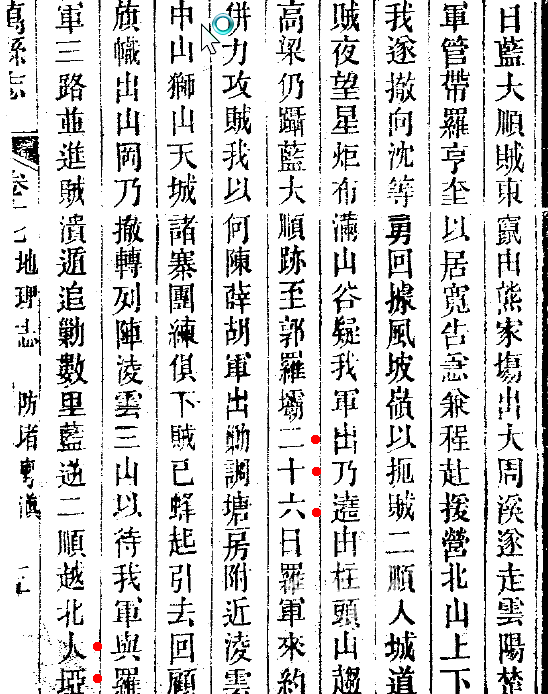 日藍大順賊東竄由熊家場出大周溪遂走雲陽楚
軍管帶羅亨奎以居寬告急兼程赴援營北山上下
我遂撤向沈等勇回據風坡嶺以扼賊二順人城道
賊夜望星炬布滿山谷疑我軍出乃遶由枉頭山趨
高梁仍躡藍大順跡至郭羅壩二十六日羅軍來約
併力攻賊我以何陳薛胡軍出勦調塘房附近淩雲
中山獅山天城諸寨團練俱下賊已蜂起引去回顧
旗幟出山岡乃撤轉列陣淩雲三山以待我軍與羅
軍三路並進賊潰遁追勦數里藍逆二順越北人埡
萬縣志 卷 地理志 防堵粵滇